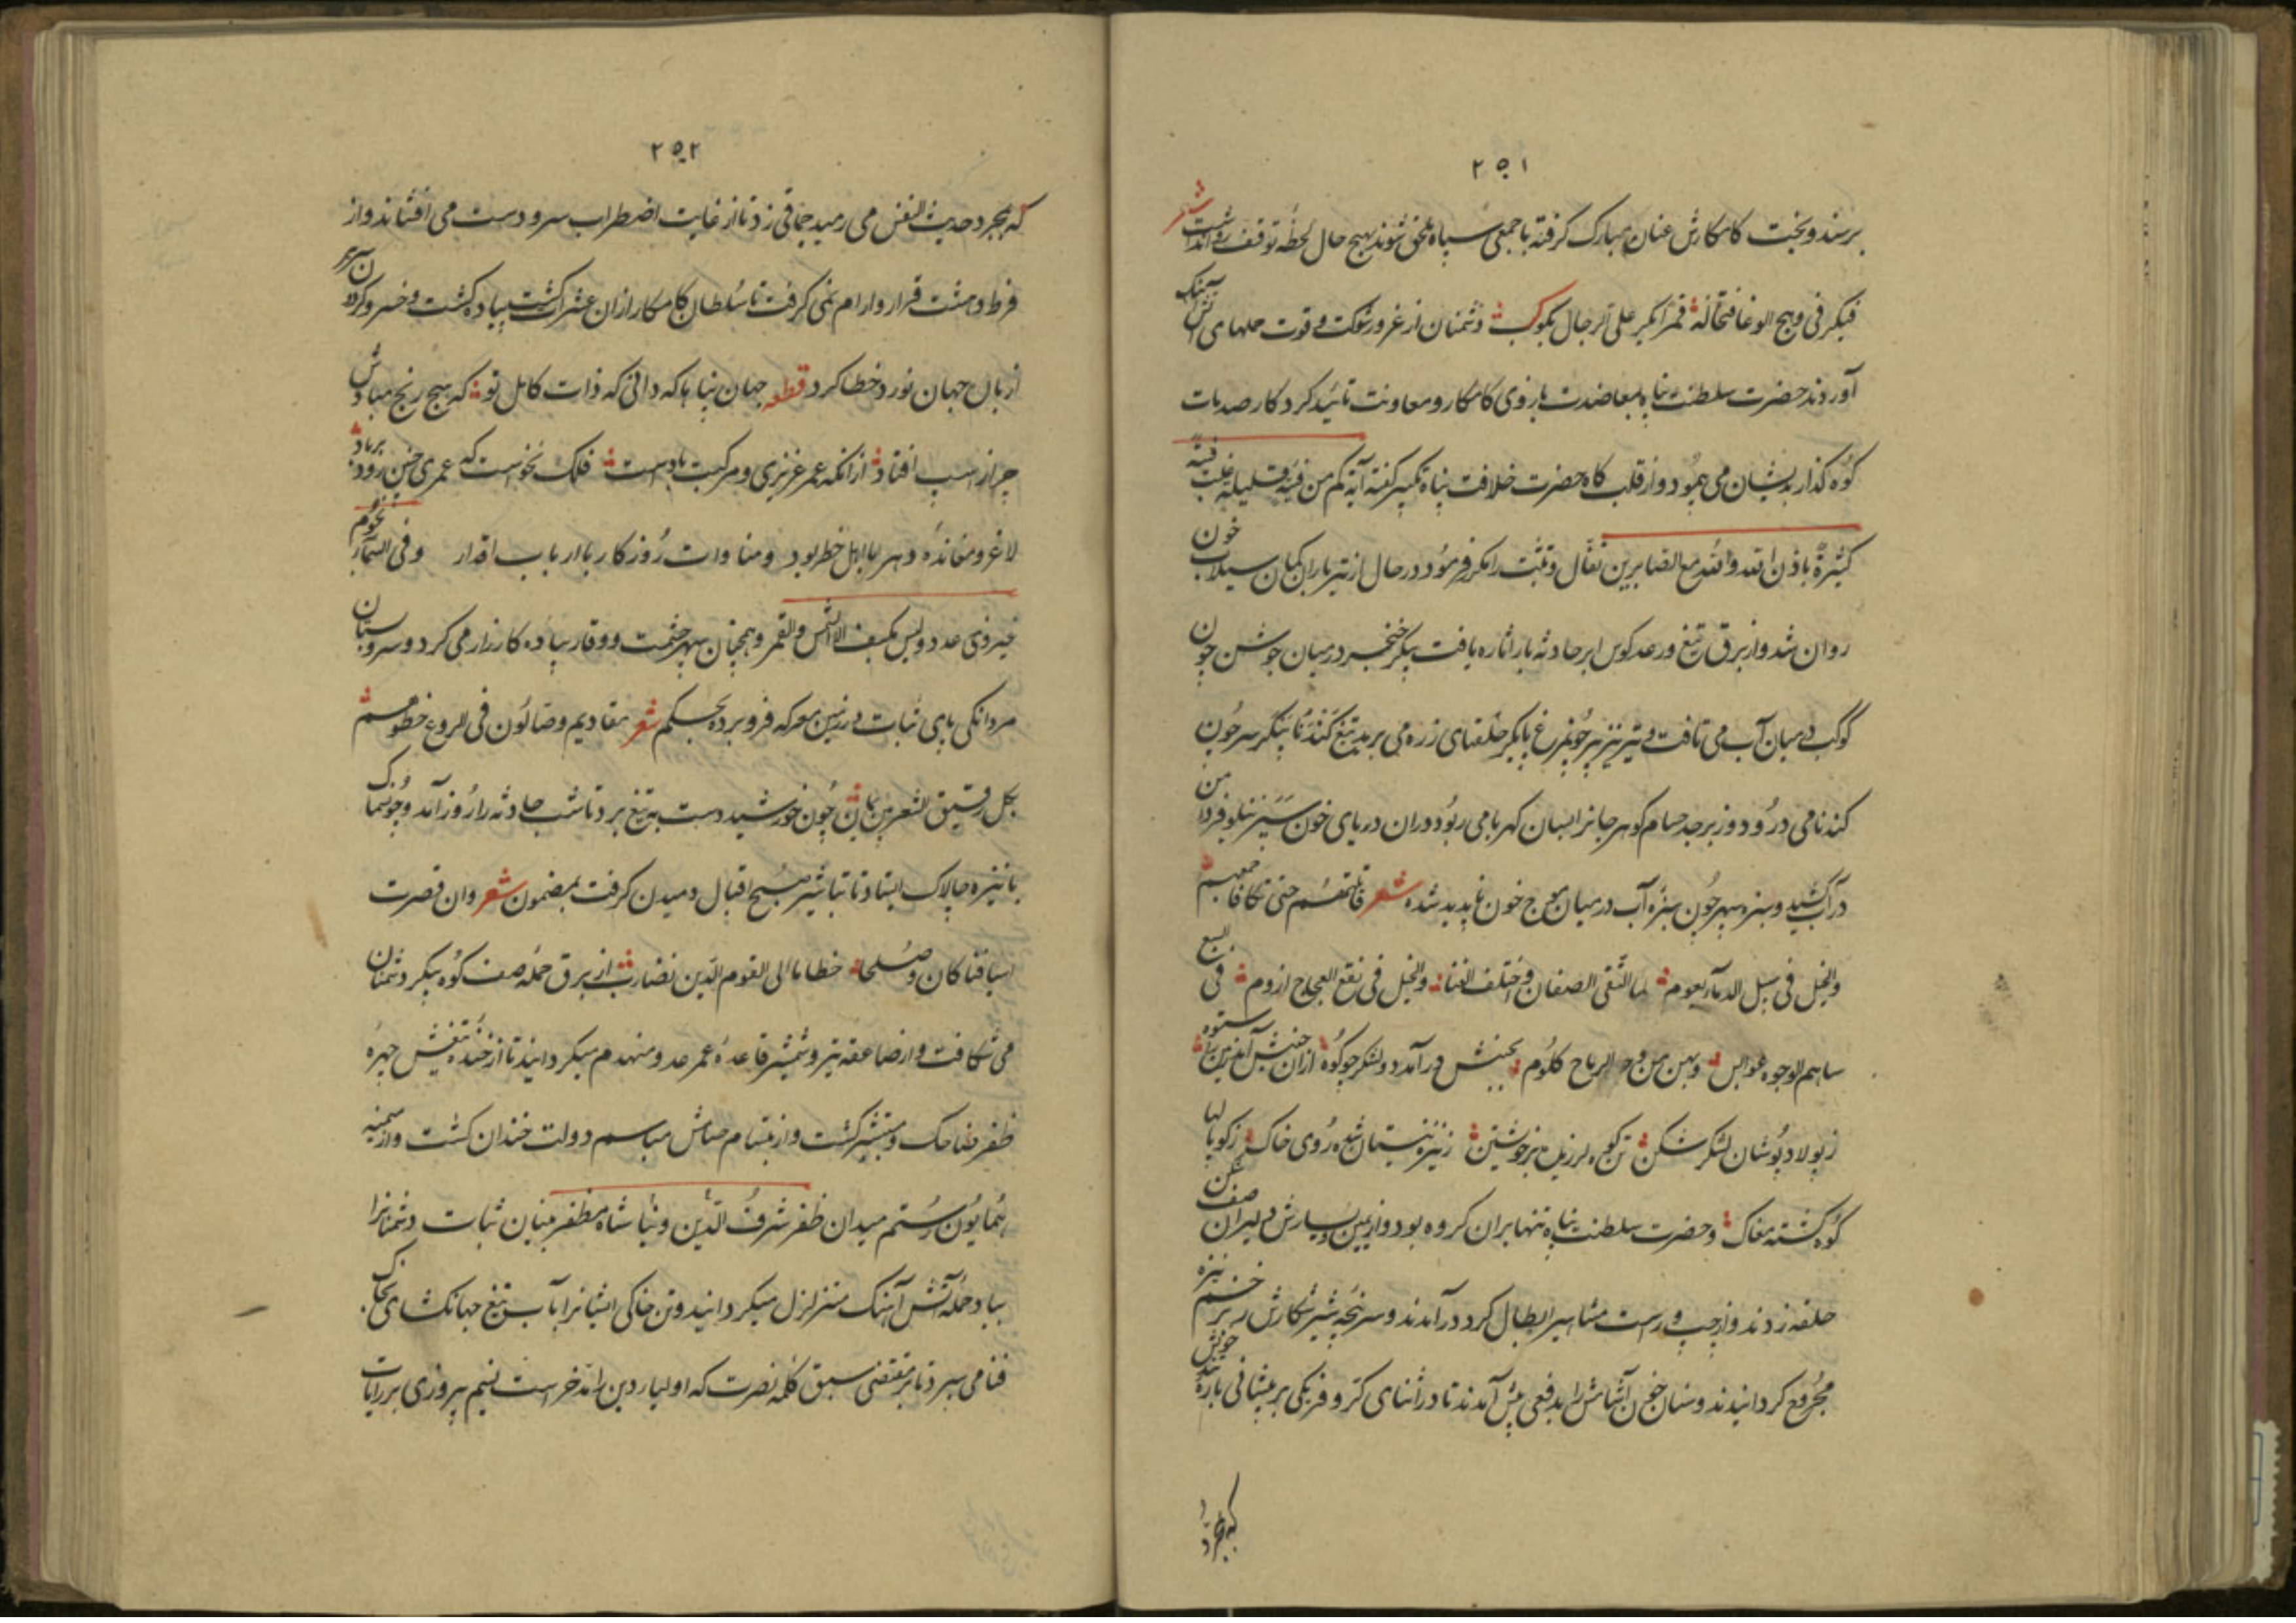 ٢٥١
برسند و بخت کامکارش عنان مبارک گرفته با جمعی سپاه ملحق شوند بهیچ حال لحظه توقف روا نداشت شعر
فکبر فی وهج الوغا فتخاله قمرا کبر علی الرجال بکوکب دشمنان از غرور شوکت و قوت حملهای آتش آهنک
آوردند حضرت سلطنت پناه بمعاضدت بازوی کامکار و معاونت تائید کردکار صدمات
کوه گذار بدیشان می نمود و از قلب کاه حضرت خلافت پناه تکبیر گفته آیه کم من فئة قلیلة غلبت فئة
کثیرة باذن الله والله مع الصابرین تفال و تثبت را مکرر فرمود در حال از تیر باران کمان سیلاب خون
روان شد و از برق تیغ و رعد کوس ابر حادثه بار اثاره یافت پیکر خنجر در میان جوشن چون
کوکب در میان آب می تافت و تیر تیز پر چون مرغ حلقهای زره می برید تیغ گندنا پیکر سر چون
کندنا می درود و زبرجد حسام کوهر جانرا بسان کهربا می ربود در آن دریای خون سپر نیلوفر دامن
در آب کشید و سبزه سپهر چون سبزه آب در میان موج خون ناپدید شده شعر فالتقهم حتی تکافا جمعهم
والخیل فی سبل الدمآء تعوم لما التقی الصفان و اختلف القنا والخیل فی نقع العجاج ازوم فی السبع
ساهم الوجوه عوابس وبهن من الرماح کلوم بجنبش در آمد دو لشکر چو کوه ازان جنبش آمد زمین را ستوه
ز پولاد پوشان لشکر شکن تن کوه لرزید بر خویشتن ز نیزه نیستان شده روی خاک ز کوپالها
کوه گشته مغاک و حضرت سلطنت پناه تنها بران کروه بود و از یمین و یسارش دلیران صف شکن
حلقه زدند و از چپ و راست مشاهیر ابطال کرد در آمدند و سرپنجه شیر شکارش بر زخم نیزه
مجروح کردانیدند و سنان خون آشامش را بدفعی پیش آمدند تا در اثنای کر و فر یکی بر پیشانی باره تند خویش
که بمجرد
٢٥٢
که بمجرد حدیث النفس می رمید چماقی زد تا از غایت اضطراب سر و دست می افشاند و از
فرط دهشت قرار و ارام نمی کرفت تا سلطان کامکار ازان عثرات پیاده کشت و خسرو کردون سریر
از بال جهان نورد خطا کرد قطعه جهان پناها که دانی که ذات کامل تو که هیچ رنج مبادش
چرا از اسپ افتاد از انکه عمر عزیزی و مرکبت باد است فلک نخواست که عمری چنین رود بر باد
لا غرو معانده دهر با اهل خطر بود و مناوات روزکار با ارباب اقدار و فی السمآء نجوم
غیر ذی عدد ولیس یکسف الا الشمس والقمر و همچنان سپهر حشمت و وقار پیاده کارزار می کرد و سرو بستان
مردانکی پای ثبات در زمین معرکه فرو برده بحکم شعر مقادیم وصالون فی الروع خطوهم
بکل رقیق الشفرتین یمان چون خورشید دست به تیغ برد تا شب حادثه را روز آمد و چون سماک
با نیزه چالاک ایستاد تا تباشیر صبح اقبال دمیدن کرفت بمضمون شعر وان قصرت
اسیافنا کان وصلها خطانا الی القوم الذین نضارب از برق حمله صف کوه پیکر دشمنان
می شکافت و از صاعقه تیر و شمشیر قاعده عمر عدو منهدم میکردانید تا از خنده تیغش چهره
ظفر ضاحک و مستبشر کشت و از ابتسام حسامش مباسم دولت خندان کشت و از میمنه
همایون رستم میدان ظفر شرف الدنیا و الدین شاه مظفر بنیان ثبات دشمنانرا
بباد حمله آتش آهنک متزلزل میکردانید و تن خاکی ایشانرا بآب تیغ جهانکشای بخاک
فنا می سپرد تا بر مقتضی سبق کلمه نصرت که اولیاء دین را مدخر است نسیم پیروزی بر رایات